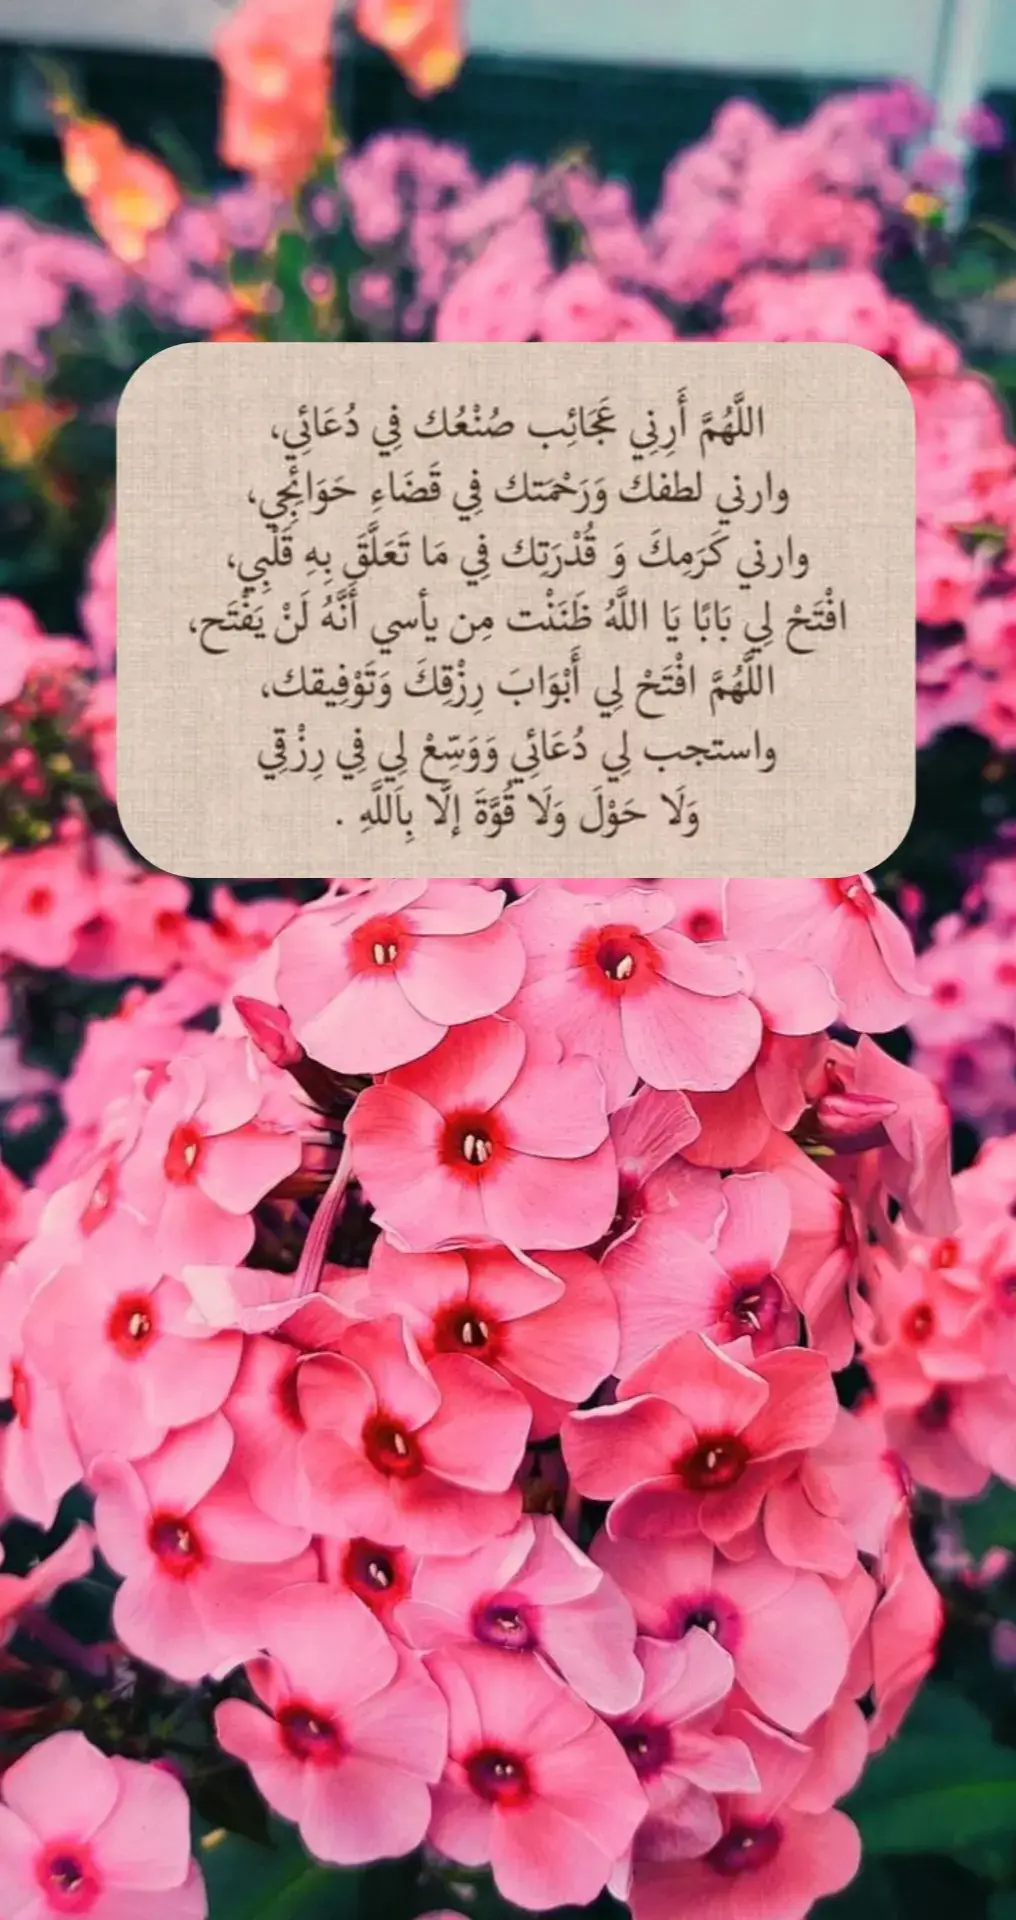 اللَّهُمَّ أَرِنِي عَجَائِب صُنْعُك فِي دُعَائِي،
وارني لطفك وَرَحْمَتك فِي قَضَاءِ حَوَائِجِي،
وارني كَرَمِكَ وَ قُدْرَتِك فِي مَا تَعَلَّقَ بِهِ قَلْبِي،
افْتَحْ لِي بَابًا يَا اللَّهُ ظَنَنْت مِن يأسي أَنَّهُ لَنْ يَفْتَح،
اللَّهُمَّ افْتَحْ لِي أَبْوَابَ رِزْقِكَ وَتَوْفِيقك،
واستجب لِي دُعَائِي وَوَسِّعْ لِي فِي رِزْقِي
وَلَا حَوْلَ وَلَا قُوَّةَ إلَّا بِاَللَّهِ .